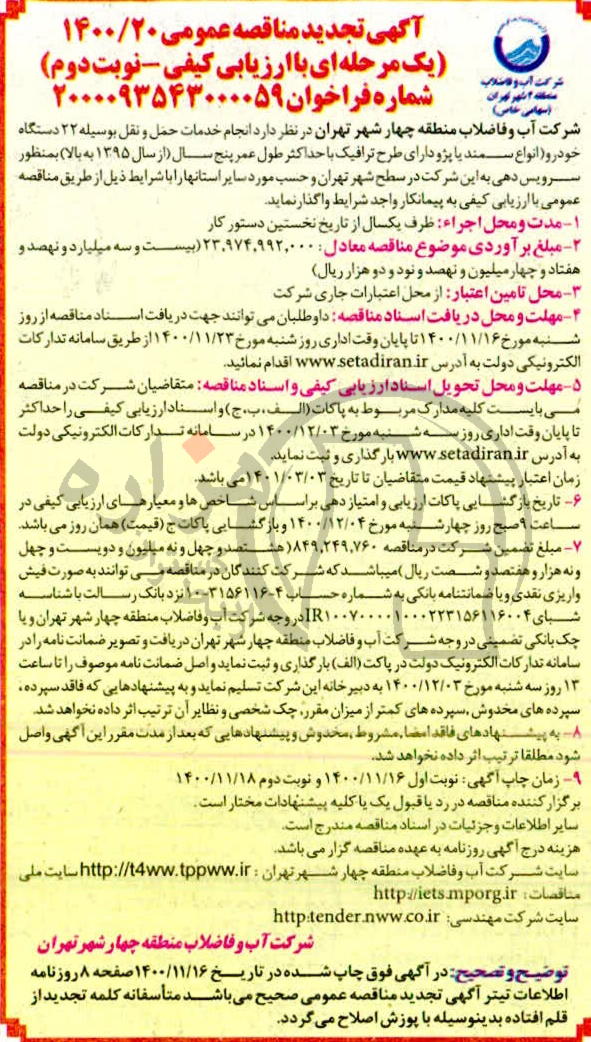 آگهی تجدید مناقصه عمومی ۱۴۰۰/۲۰
(یک مرحله‌ای با ارزیابی کیفی – نوبت دوم)
شماره فراخوان ۲۰۰۰۰۹۳۵۴۳۰۰۰۰۵۹
شرکت آب و فاضلاب
منطقه ۴ شهر تهران
(سهامی خاص)
شرکت آب و فاضلاب منطقه چهار شهر تهران در نظر دارد انجام خدمات حمل و نقل بوسیله ۲۲ دستگاه
خودرو (انواع سمند یا پژو دارای طرح ترافیک با حداکثر طول عمر پنج سال (از سال ۱۳۹۵ به بالا) بمنظور
سرویس دهی به این شرکت در سطح شهر تهران و حسب مورد سایر استانها را با شرایط ذیل از طریق مناقصه
عمومی با ارزیابی کیفی به پیمانکار واجد شرایط واگذار نماید.
۱- مدت و محل اجراء: ظرف یکسال از تاریخ نخستین دستور کار
۲- مبلغ برآوردی موضوع مناقصه معادل: ۲۳,۹۷۴,۹۹۲,۰۰۰ (بیست و سه میلیارد و نهصد و
هفتاد و چهار میلیون و نهصد و نود و دو هزار ریال)
۳- محل تامین اعتبار: از محل اعتبارات جاری شرکت
۴- مهلت و محل دریافت اسناد مناقصه: داوطلبان می توانند جهت دریافت اسناد مناقصه از روز
شنبه مورخ ۱۴۰۰/۱۱/۱۶ تا پایان وقت اداری روز شنبه مورخ ۱۴۰۰/۱۱/۲۳ از طریق سامانه تدارکات
الکترونیکی دولت به آدرس www.setadiran.ir اقدام نمائید.
۵- مهلت و محل تحویل اسناد ارزیابی کیفی و اسناد مناقصه: متقاضیان شرکت در مناقصه
می بایست کلیه مدارک مربوط به پاکات (الف، ب، ج) و اسناد ارزیابی کیفی را حداکثر
تا پایان وقت اداری روز سه شنبه مورخ ۱۴۰۰/۱۲/۰۳ در سامانه تدارکات الکترونیکی دولت
به آدرس www.setadiran.ir بارگذاری و ثبت نماید.
زمان اعتبار پیشنهاد قیمت متقاضیان تا تاریخ ۱۴۰۱/۰۳/۰۳ می باشد.
۶- تاریخ بازگشایی پاکات ارزیابی و امتیازدهی براساس شاخص ها و معیارهای ارزیابی کیفی در
ساعت ۹ صبح روز چهارشنبه مورخ ۱۴۰۰/۱۲/۰۴ و بازگشایی پاکات ج (قیمت) همان روز می باشد.
۷- مبلغ تضمین شرکت در مناقصه ۸۴۹,۲۴۹,۷۶۰ (هشتصد و چهل و نه میلیون و دویست و چهل
و نه هزار و هفتصد و شصت ریال) میباشد که شرکت کنندگان در مناقصه می توانند به صورت فیش
واریزی نقدی و یا ضمانتنامه بانکی به شماره حساب ۴-۳۱۵۶۱۱۶-۱۰ نزد بانک رسالت با شناسه
شبای IR۱۰۰۷۰۰۰۰۱۰۰۰۲۲۳۱۵۶۱۱۶۰۰۴ در وجه شرکت آب و فاضلاب منطقه چهار شهر تهران و یا
چک بانکی تضمینی در وجه شرکت آب و فاضلاب منطقه چهار شهر تهران دریافت و تصویر ضمانت نامه را در
سامانه تدارکات الکترونیک دولت در پاکت (الف) بارگذاری و ثبت نماید و اصل ضمانت نامه موصوف را تا ساعت
۱۳ روز سه شنبه مورخ ۱۴۰۰/۱۲/۰۳ به دبیرخانه این شرکت تسلیم نماید و به پیشنهادهایی که فاقد سپرده،
سپرده های مخدوش، سپرده های کمتر از میزان مقرر، چک شخصی و نظایر آن ترتیب اثر داده نخواهد شد.
۸- به پیشنهادهای فاقد امضا، مشروط، مخدوش و پیشنهادهایی که بعد از مدت مقرر این آگهی واصل
شود مطلقا ترتیب اثر داده نخواهد شد.
۹- زمان چاپ آگهی: نوبت اول ۱۴۰۰/۱۱/۱۶ و نوبت دوم ۱۴۰۰/۱۱/۱۸
برگزار کننده مناقصه در رد یا قبول یک یا کلیه پیشنهادات مختار است.
سایر اطلاعات و جزئیات در اسناد مناقصه مندرج است.
هزینه درج آگهی روزنامه به عهده مناقصه گزار می باشد.
سایت شرکت آب و فاضلاب منطقه چهار شهر تهران: http://t4ww.tppww.ir سایت ملی
مناقصات: http://iets.mporg.ir
سایت شرکت مهندسی: http:tender.nww.co.ir
شرکت آب و فاضلاب منطقه چهار شهر تهران
توضیح و تصحیح: در آگهی فوق چاپ شده در تاریخ ۱۴۰۰/۱۱/۱۶ صفحه ۸ روزنامه
اطلاعات تیتر آگهی تجدید مناقصه عمومی صحیح می باشد متأسفانه کلمه تجدید از
قلم افتاده بدینوسیله با پوزش اصلاح می گردد.